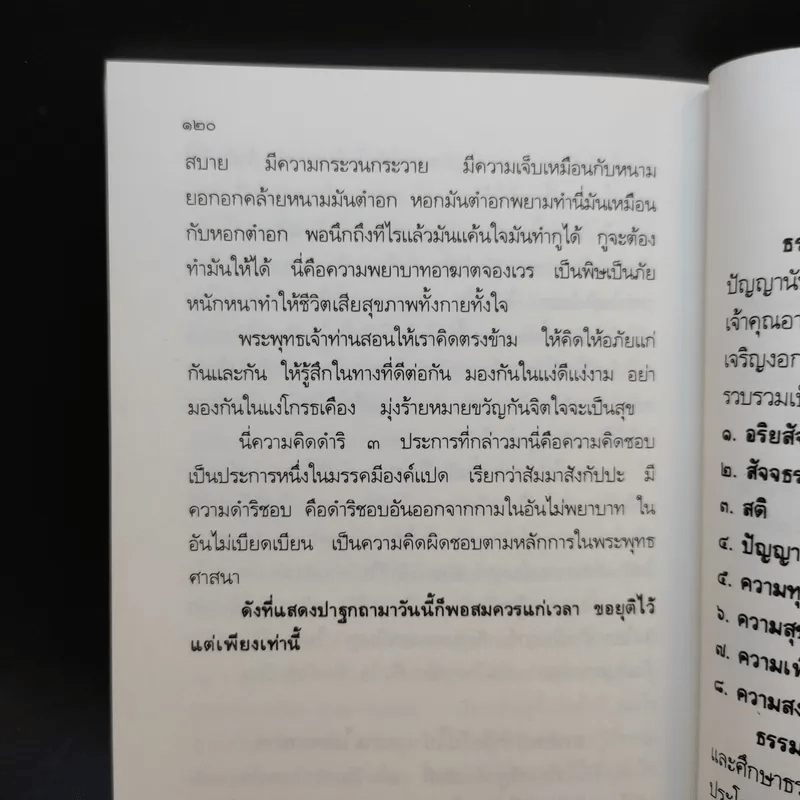 ๑๒๐
สบาย มีความกระวนกระวาย มีความเจ็บเหมือนกับหนาม
ยอกอกคล้ายหนามมันตำอก หอกมันตำอกพยามทำนี่มันเหมือน
กับหอกตำอก พอนึกถึงทีไรแล้วมันแค้นใจมันทำกูได้ กูจะต้อง
ทำมันให้ได้ นี่คือความพยาบาทอาฆาตจองเวร เป็นพิษเป็นภัย
หนักหนาทำให้ชีวิตเสียสุขภาพทั้งกายทั้งใจ
พระพุทธเจ้าท่านสอนให้เราคิดตรงข้าม ให้คิดให้อภัยแก่
กันและกัน ให้รู้สึกในทางที่ดีต่อกัน มองกันในแง่ดีแง่งาม อย่า
มองกันในแง่โกรธเคือง มุ่งร้ายหมายขวัญกันจิตใจจะเป็นสุข
นี่ความคิดดำริ ๓ ประการที่กล่าวมานี่คือความคิดชอบ
เป็นประการหนึ่งในมรรคมีองค์แปด เรียกว่าสัมมาสังกัปปะ มี
ความดำริชอบ คือดำริชอบอันออกจากกามในอันไม่พยาบาท ใน
อันไม่เบียดเบียน เป็นความคิดผิดชอบตามหลักการในพระพุทธ
ศาสนา
ดังที่แสดงปาฐกถามาวันนี้ก็พอสมควรแก่เวลา ขอยุติไว้
แต่เพียงเท่านี้
ปัญญานั
เจ้าคุณอา
เจริญงอก
รวบรวมเป็
๑. อริยสัจ
๒. สัจจธร
๓. สติ
๔. ปัญญา
๕. ความทุ
๖. ความสุ
๗. ความเ
๘. ความสง
ธรรม
และศึกษาธร